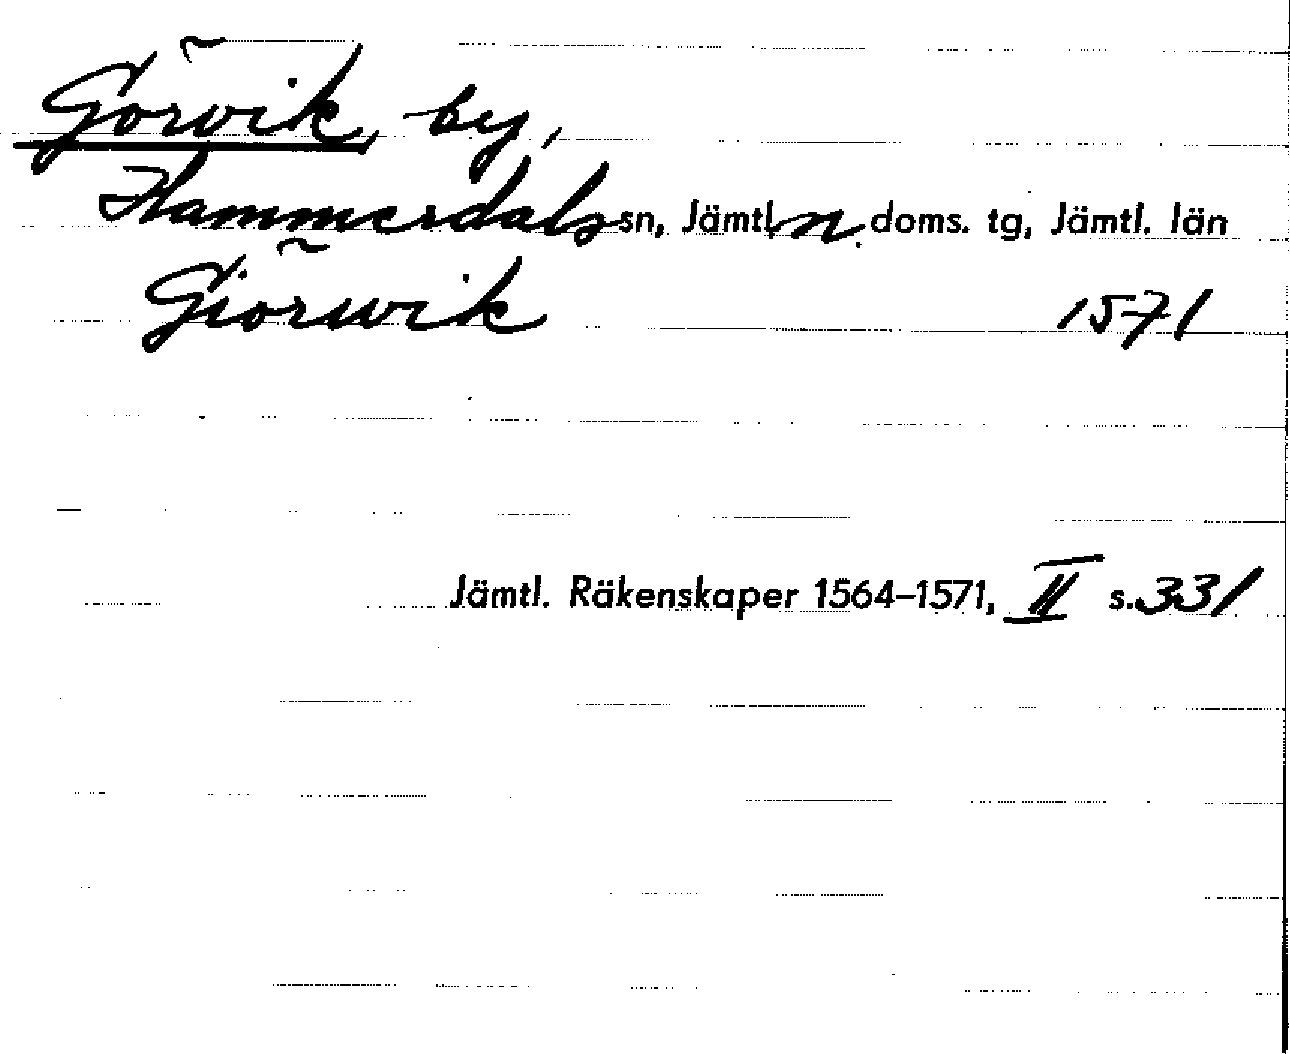 Görvik, by,
Hammerdals sn, Jämtl. n. doms. tg, Jämtl. län
Giörwik 1571
Jämtl. Räkenskaper 1564–1571, II s. 331